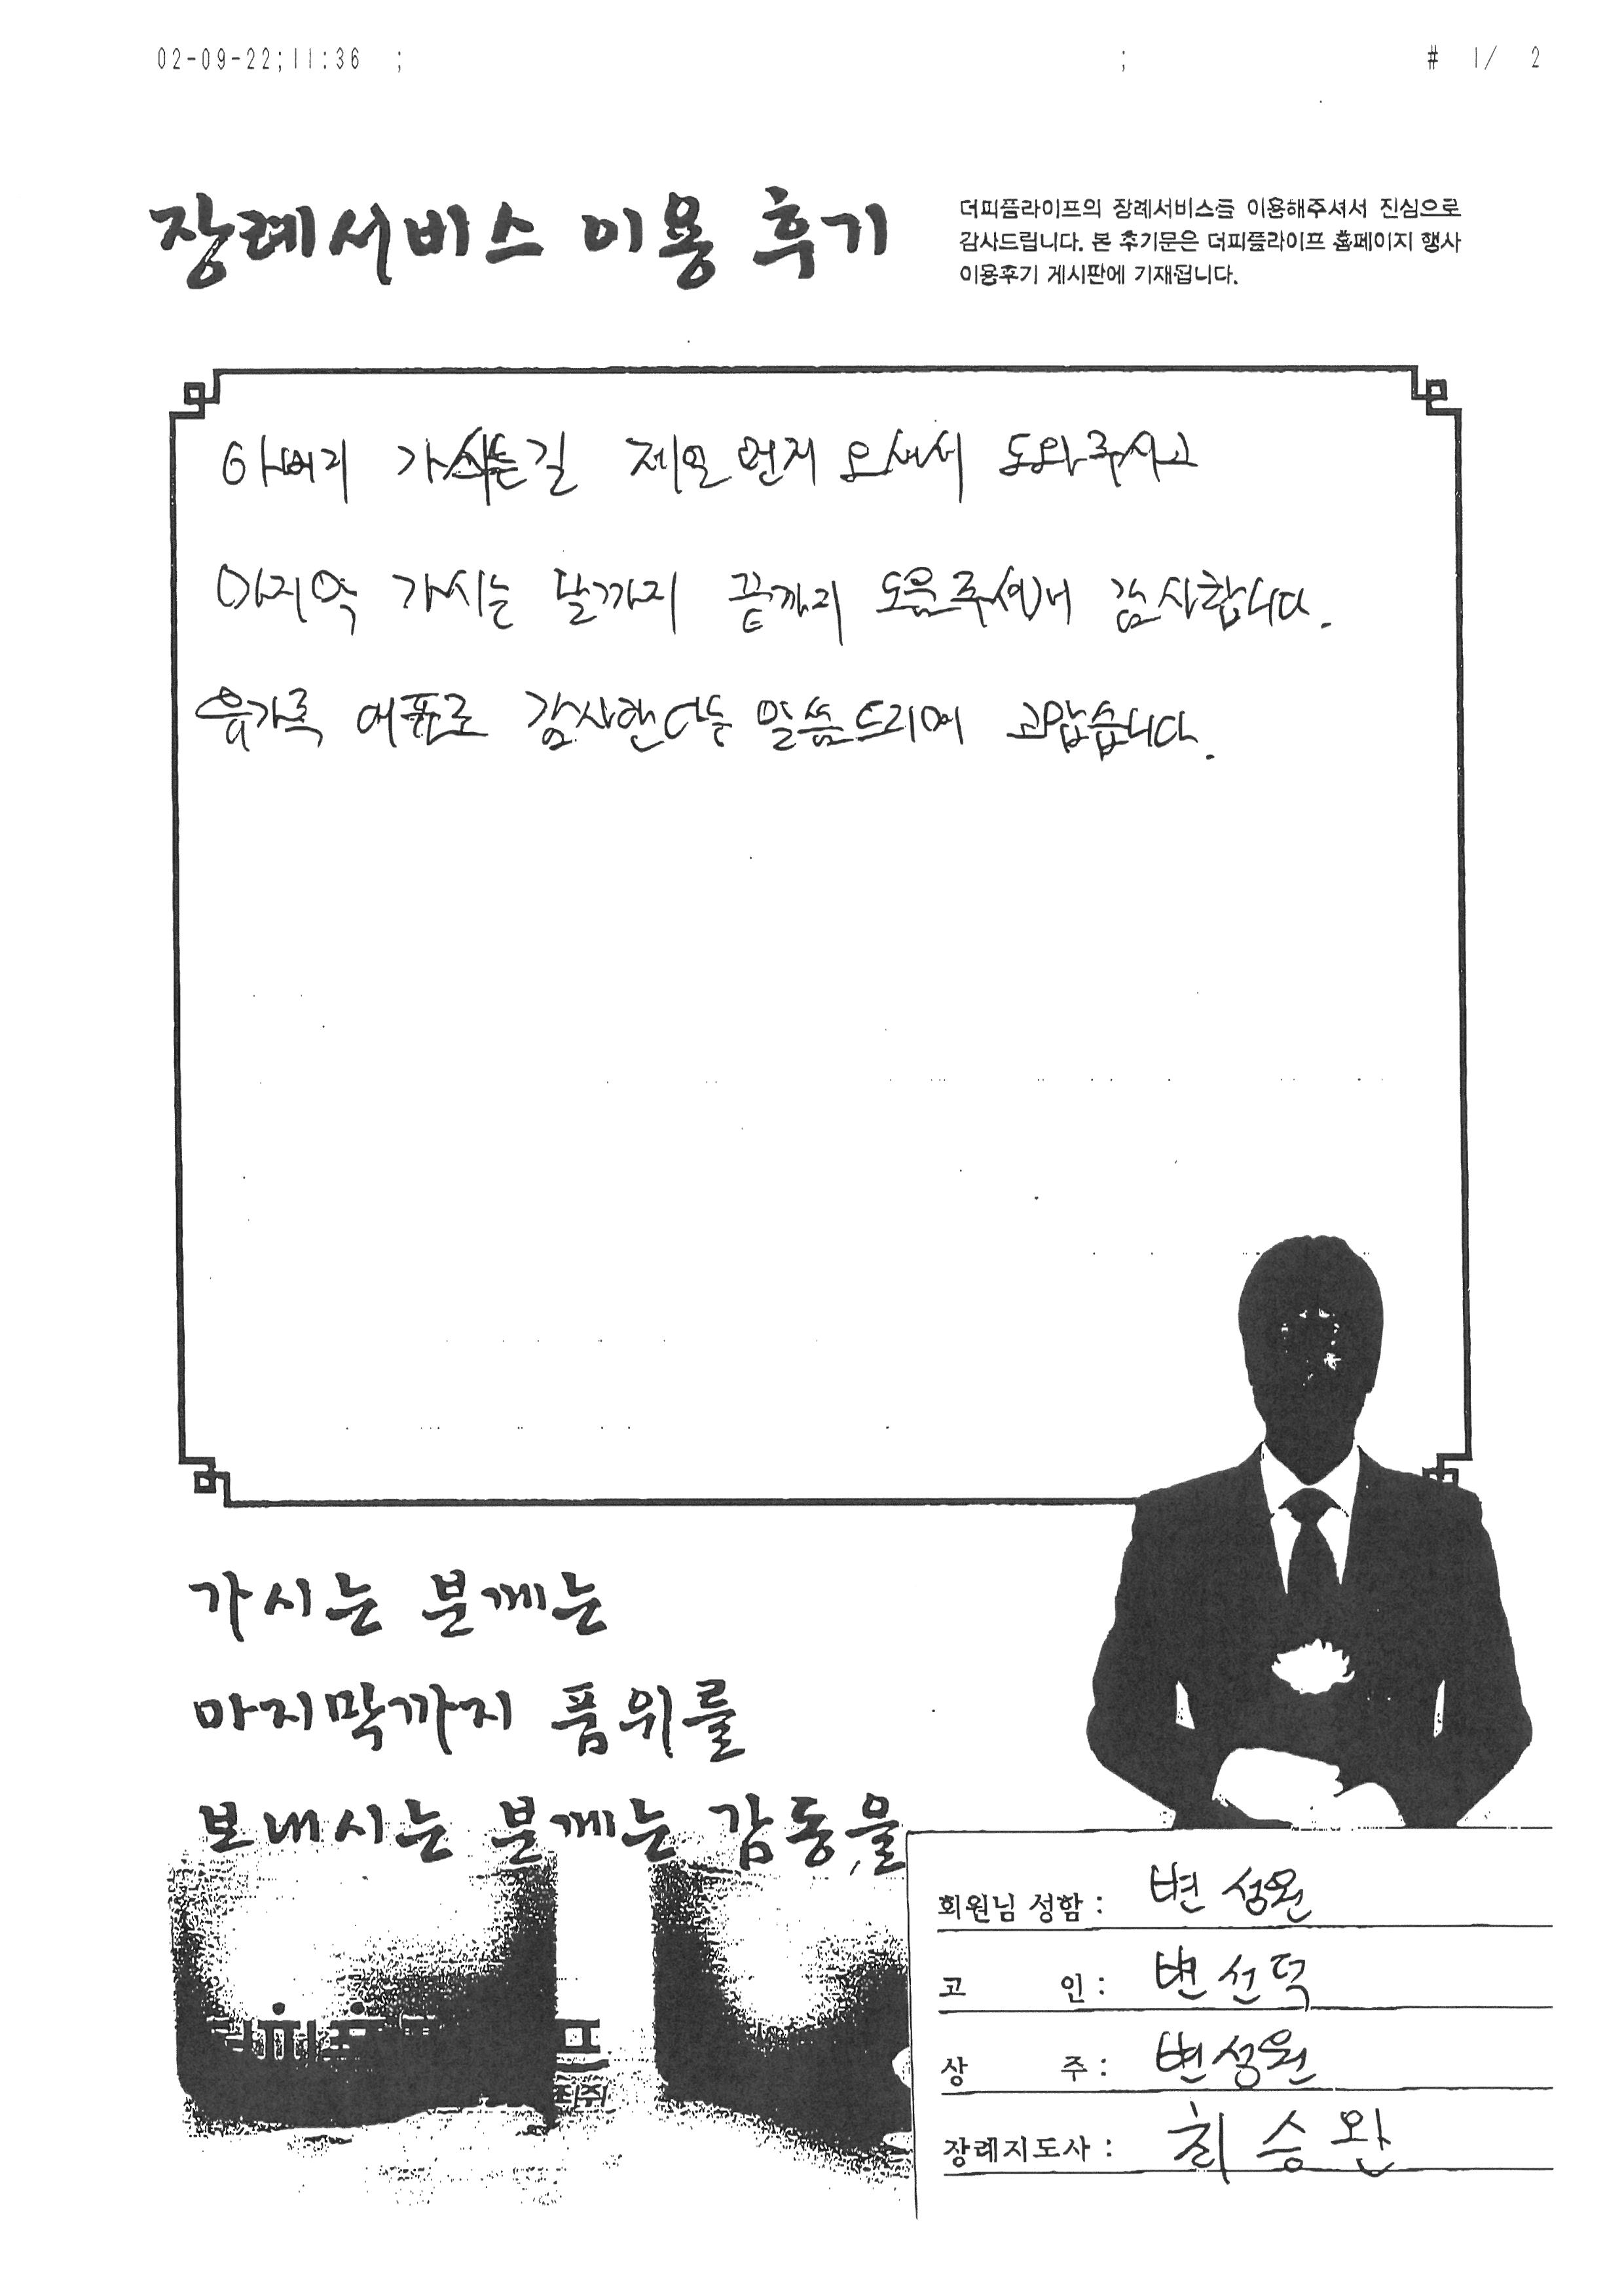 02-09-22;11:36 ; ; # 1/ 2
장례서비스 이용 후기
더피플라이프의 장례서비스를 이용해주셔서 진심으로
감사드립니다. 본 후기문은 더피플라이프 홈페이지 행사
이용후기 게시판에 기재됩니다.
아버지 가시는길 제일 먼저 오셔서 도와주시고
마지막 가시는 날까지 끝까지 도움주셔서 감사합니다.
유가족 대표로 감사한다는 말씀드리며 고맙습니다.
가시는 분께는
마지막까지 품위를
보내시는 분께는 감동을
회원님 성함 : 변성원
고 인 : 변선덕
상 주 : 변성원
장례지도사 : 최승완